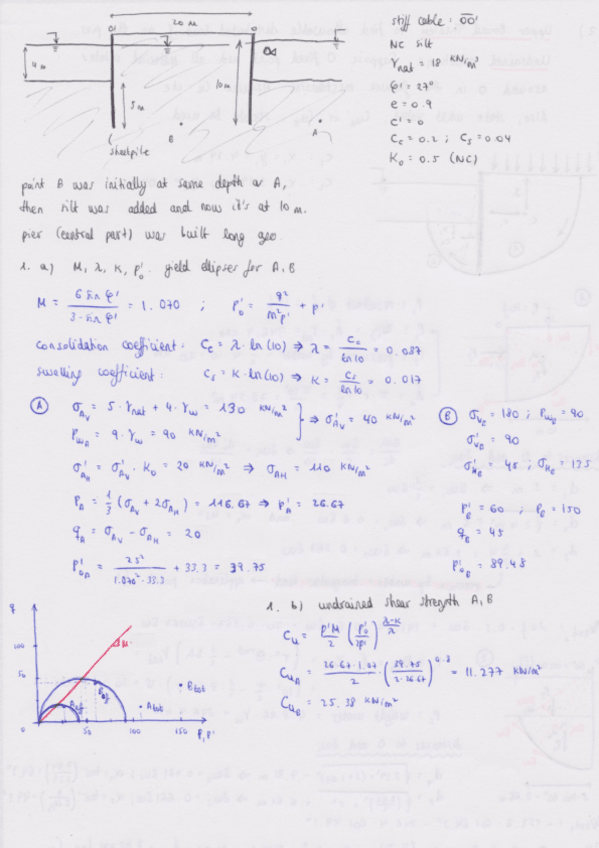 20 m
stiff cable : OO'
NC silt
γnat = 18 kN/m³
φ' = 27°
e = 0.9
c' = 0
Cc = 0.2 ; Cs = 0.04
K0 = 0.5 (NC)
O' O
4 m
5 m
10 m
B A
sheetpile
point B was initially at same depth as A,
then silt was added and now it's at 10 m.
pier (central part) was built long ago.
1. a) M, λ, κ, p'0. yield ellipses for A, B
M = 6 sin φ' / 3 - sin φ' = 1.070 ; p'0 = q² / M²p' + p'
consolidation coefficient : Cc = λ · ln(10) ⇒ λ = Cc / ln 10 = 0.087
swelling coefficient : Cs = κ · ln(10) ⇒ κ = Cs / ln 10 = 0.017
A σAv = 5 · γnat + 4 · γw = 130 kN/m²
PwA = 9 · γw = 90 kN/m² ⇒ σ'Av = 40 kN/m²
σ'AH = σ'Av · K0 = 20 kN/m² ⇒ σAH = 110 kN/m²
PA = 1/3 (σAv + 2σAH) = 116.67 ⇒ p'A = 26.67
qA = σAv - σAH = 20
p'0A = 25² / 1.070² · 33.3 + 33.3 = 39.75
B σvB = 180 ; PwB = 90
σ'vB = 90
σ'HB = 45 ; σHB = 135
p'B = 60 ; pB = 150
qB = 45
p'0B = 89.48
1. b) undrained shear strength A, B
Cu = p'M / 2 (p'0 / 2p') λ-κ / λ
CuA = 26.67 · 1.07 / 2 (39.75 / 2 · 26.67) 0.8 = 11.277 kN/m²
CuB = 25.38 kN/m²
q
100
50
M
Aeff Beff
Atot Btot
0 50 100 150 p, p'